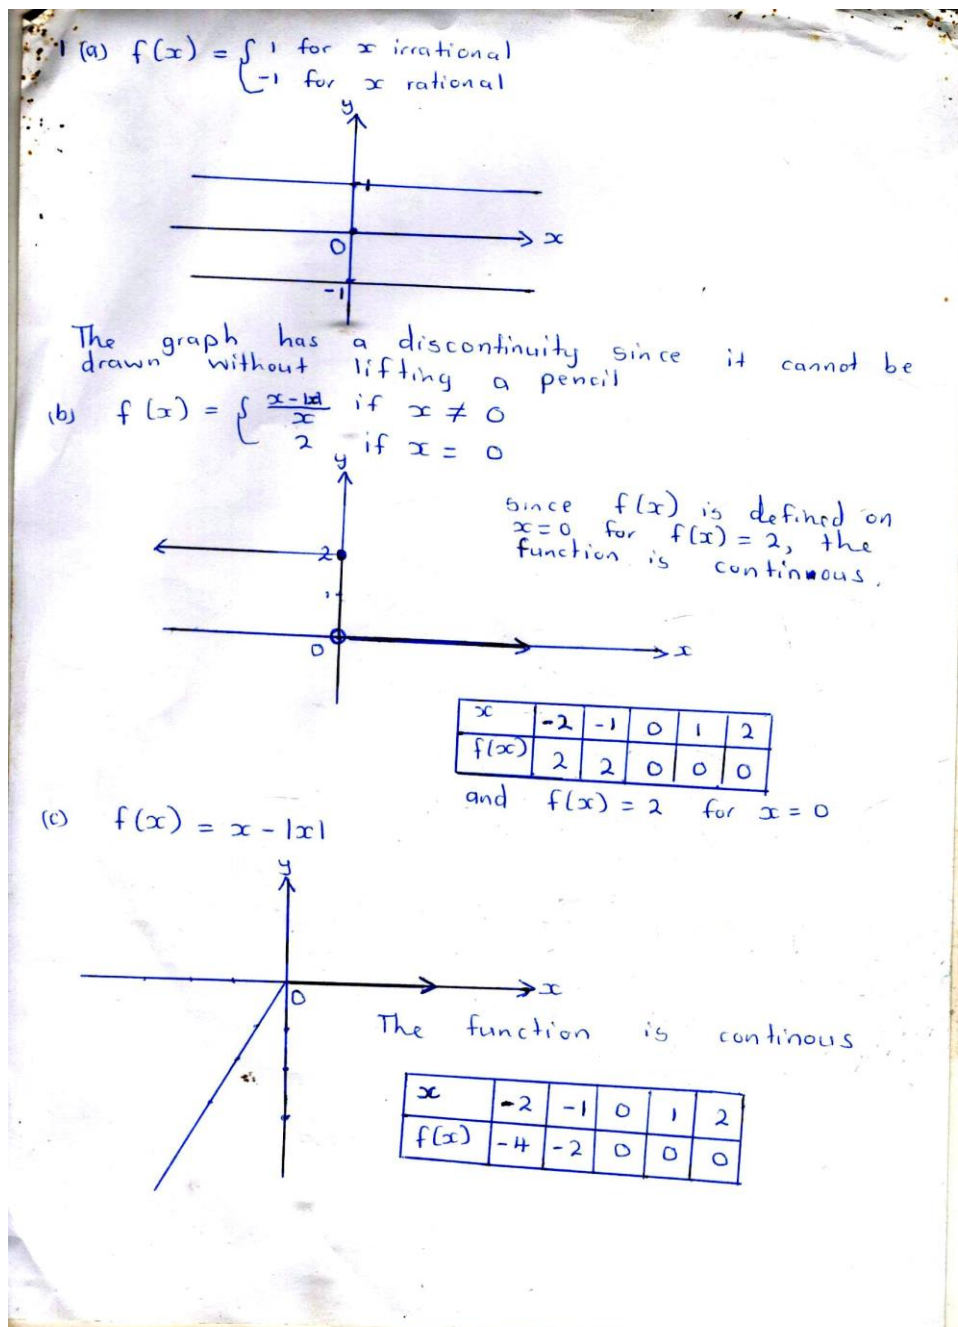 1 (a) f(x) = { 1 for x irrational
-1 for x rational
y
1
0
x
-1
The graph has a discontinuity since it cannot be
drawn without lifting a pencil
(b) f(x) = { x-|x| / x if x ≠ 0
2 if x = 0
y
since f(x) is defined on
x=0 for f(x) = 2, the
function is continuous.
2
1
0
x
x -2 -1 0 1 2
f(x) 2 2 0 0 0
and f(x) = 2 for x = 0
(c) f(x) = x - |x|
y
x
0
The function is continous
x -2 -1 0 1 2
f(x) -4 -2 0 0 0